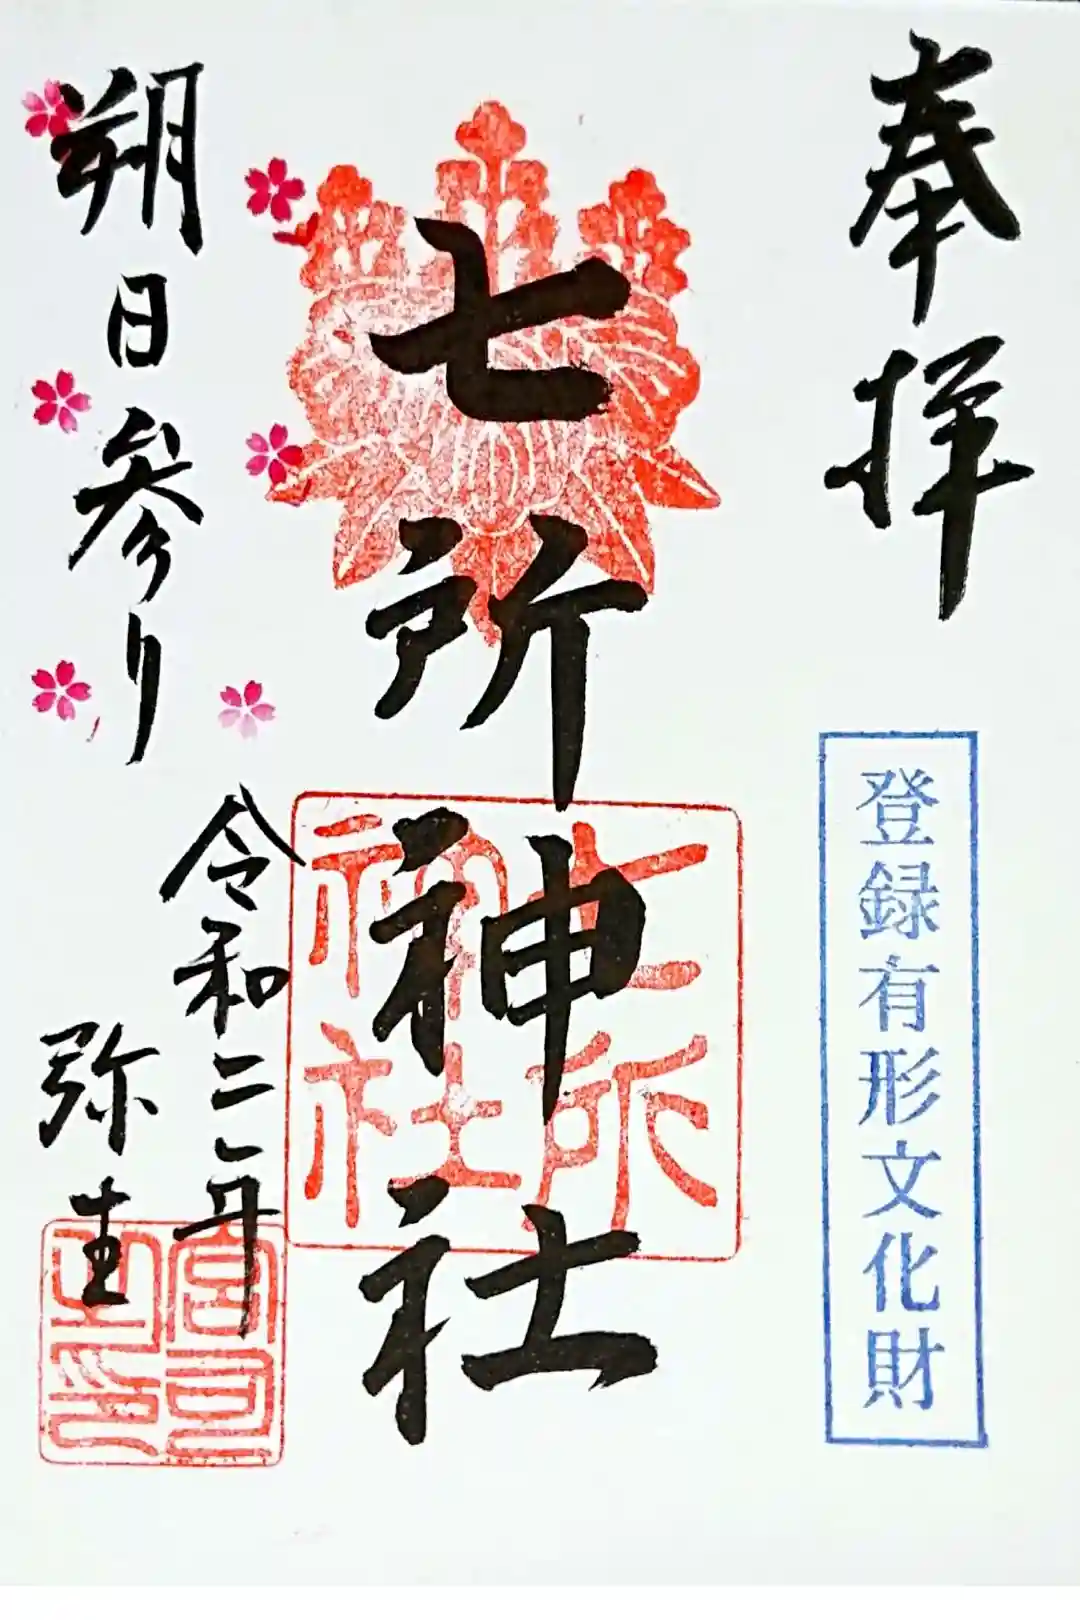 奉拝
登録有形文化財
七所神社
七所神社
令和二年
弥生
朔日参り
宮司之印